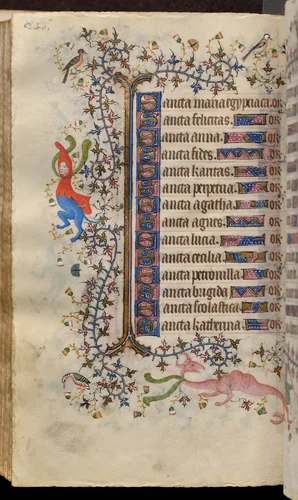 Sancta maria egypciaca. or
Sancta felicitas. or
Sancta anna. or
Sancta fides. or
Sancta karitas. or
Sancta perpetua. or
Sancta agatha. or
Sancta agnes. or
Sancta lucia. or
Sancta cecilia. or
Sancta petronilla. or
Sancta brigida. or
Sancta scolastica. or
Sancta katherina. or